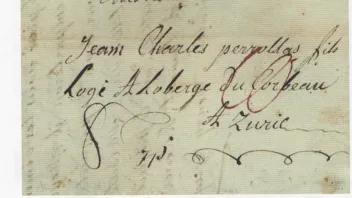 Jean Charles perrollas fils
Logé A Loberge du Corbeau
A Zuric